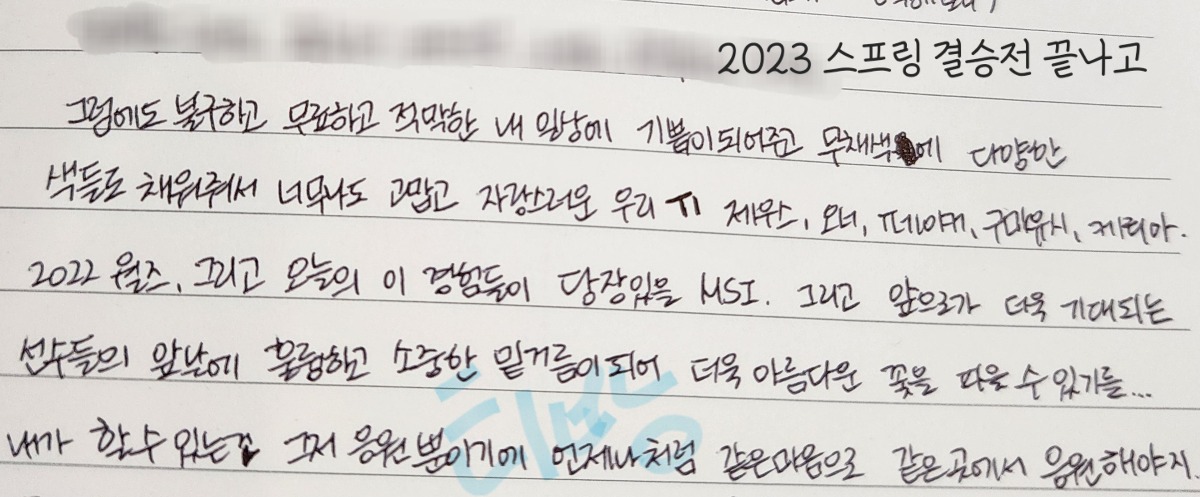 2023 스프링 결승전 끝나고
그럼에도 불구하고 무료하고 적막한 내 일상에 기쁨이 되어주고 무채색에 다양한
색들로 채워줘서 너무나도 고맙고 자랑스러운 우리 T1 제우스, 오너, 페이커, 구마유시, 케리아.
2022 월즈, 그리고 오늘의 이 경험들이 당장있을 MSI. 그리고 앞으로가 더욱 기대되는
선수들의 앞날에 훌륭하고 소중한 밑거름이 되어 더욱 아름다운 꽃을 피울 수 있기를...
내가 할 수 있는건 그저 응원 뿐이기에 언제나처럼 같은 마음으로 같은 곳에서 응원해야지